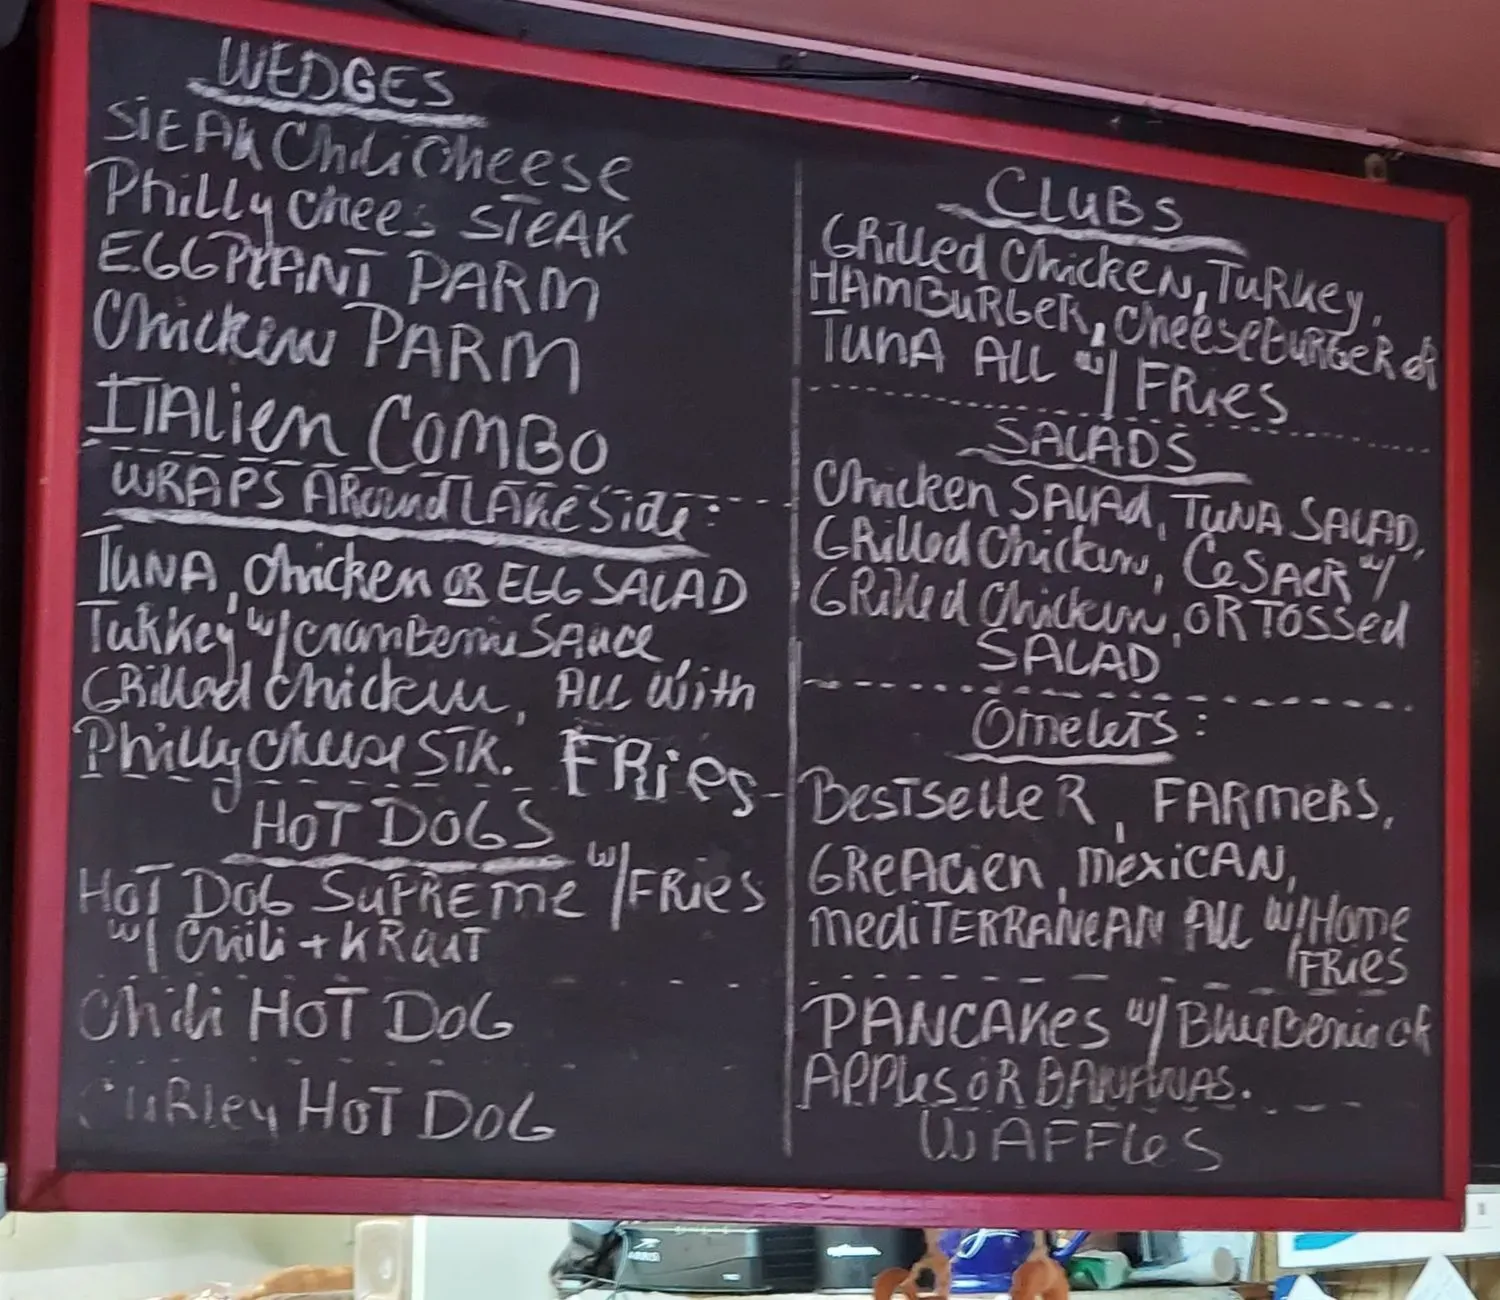 WEDGES
STEAK Chili Cheese
Philly Chees STEAK
EGGPLANT PARM
Chicken PARM
ITALien COMBO
WRAPS ARound LAKeside:
TUNA, Chicken OR EGG SALAD
Turkey w/ CranBerrie SAuce,
GRilled Chicken, ALL With
Philly Cheese STK. FRies
HOT DOGS
HOT DOG SuPREme w/ FRies
w/ Chili + KRAUT
Chili HOT DOG
HOT DOG
CLUBS
GRilled Chicken, TuRkey,
HAMBURGER, CheeseBURGER oR
TunA ALL w/ FRies
SALADS
Chicken SALAd, TUNA SALAD,
GRilled Chicken, CeSAeR w/
GRilled Chicken, OR TOSSed
SALAD
Omelets:
BesTselleR, FARmeRS,
GReAcien, mexiCAN,
mediTERRANeAN ALL w/ Home
FRies
PANCAKes w/ BlueBerrie oR
APPles oR BANANAS.
WAFFles
ARRIS